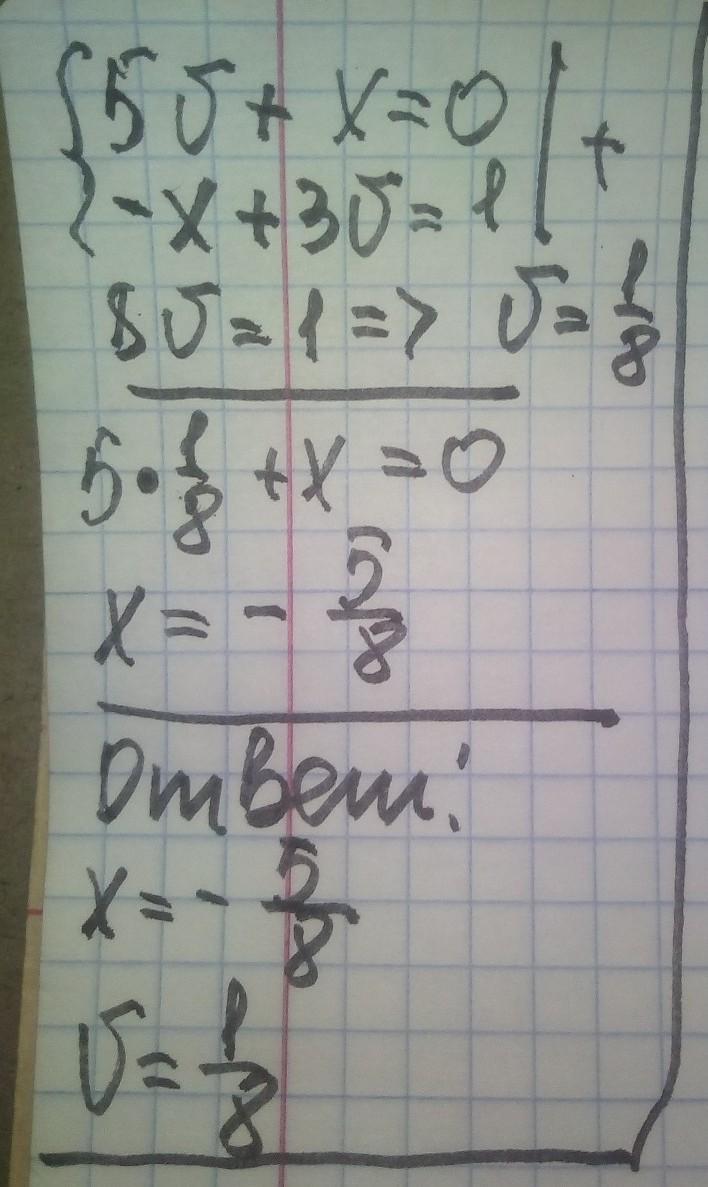 {5υ + x = 0 | +
-x + 3υ = 1
8υ = 1 => υ = 1/8
5 · 1/8 + x = 0
x = - 5/8
Ответ:
x = - 5/8
υ = 1/8